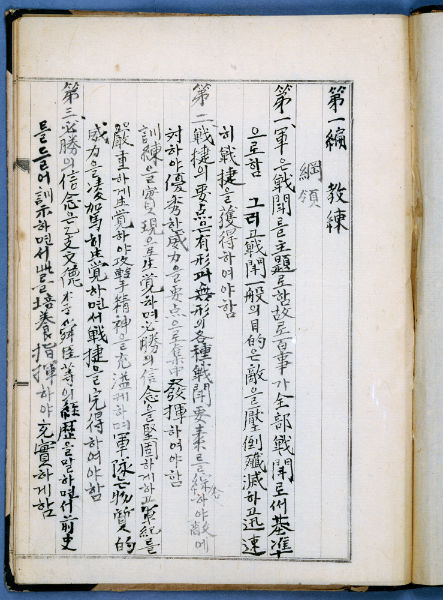 第一編 敎練
綱領
第一、軍은戰鬪를主題로함故로百事가全部戰鬪로써基準
으로함 그리고戰鬪一般의目的은敵을壓倒殲滅하고迅速
히戰捷을獲得하여야함
第二 戰捷의要点은有形과無形의各種戰鬪要素를綜合하야敵에
対하야優秀한威力을要点으로集中發揮하여야함
訓練을 하며必勝의信念을堅固하게하고軍紀를
嚴重하게 하야攻擊精神을充溢케하며軍隊는物質的
威力을凌駕 하면서戰捷을 得하여야함
第三、必勝의信念은 等의經歷을말하면서前史
를들어訓示하면서此를培養指揮하야充實하게함